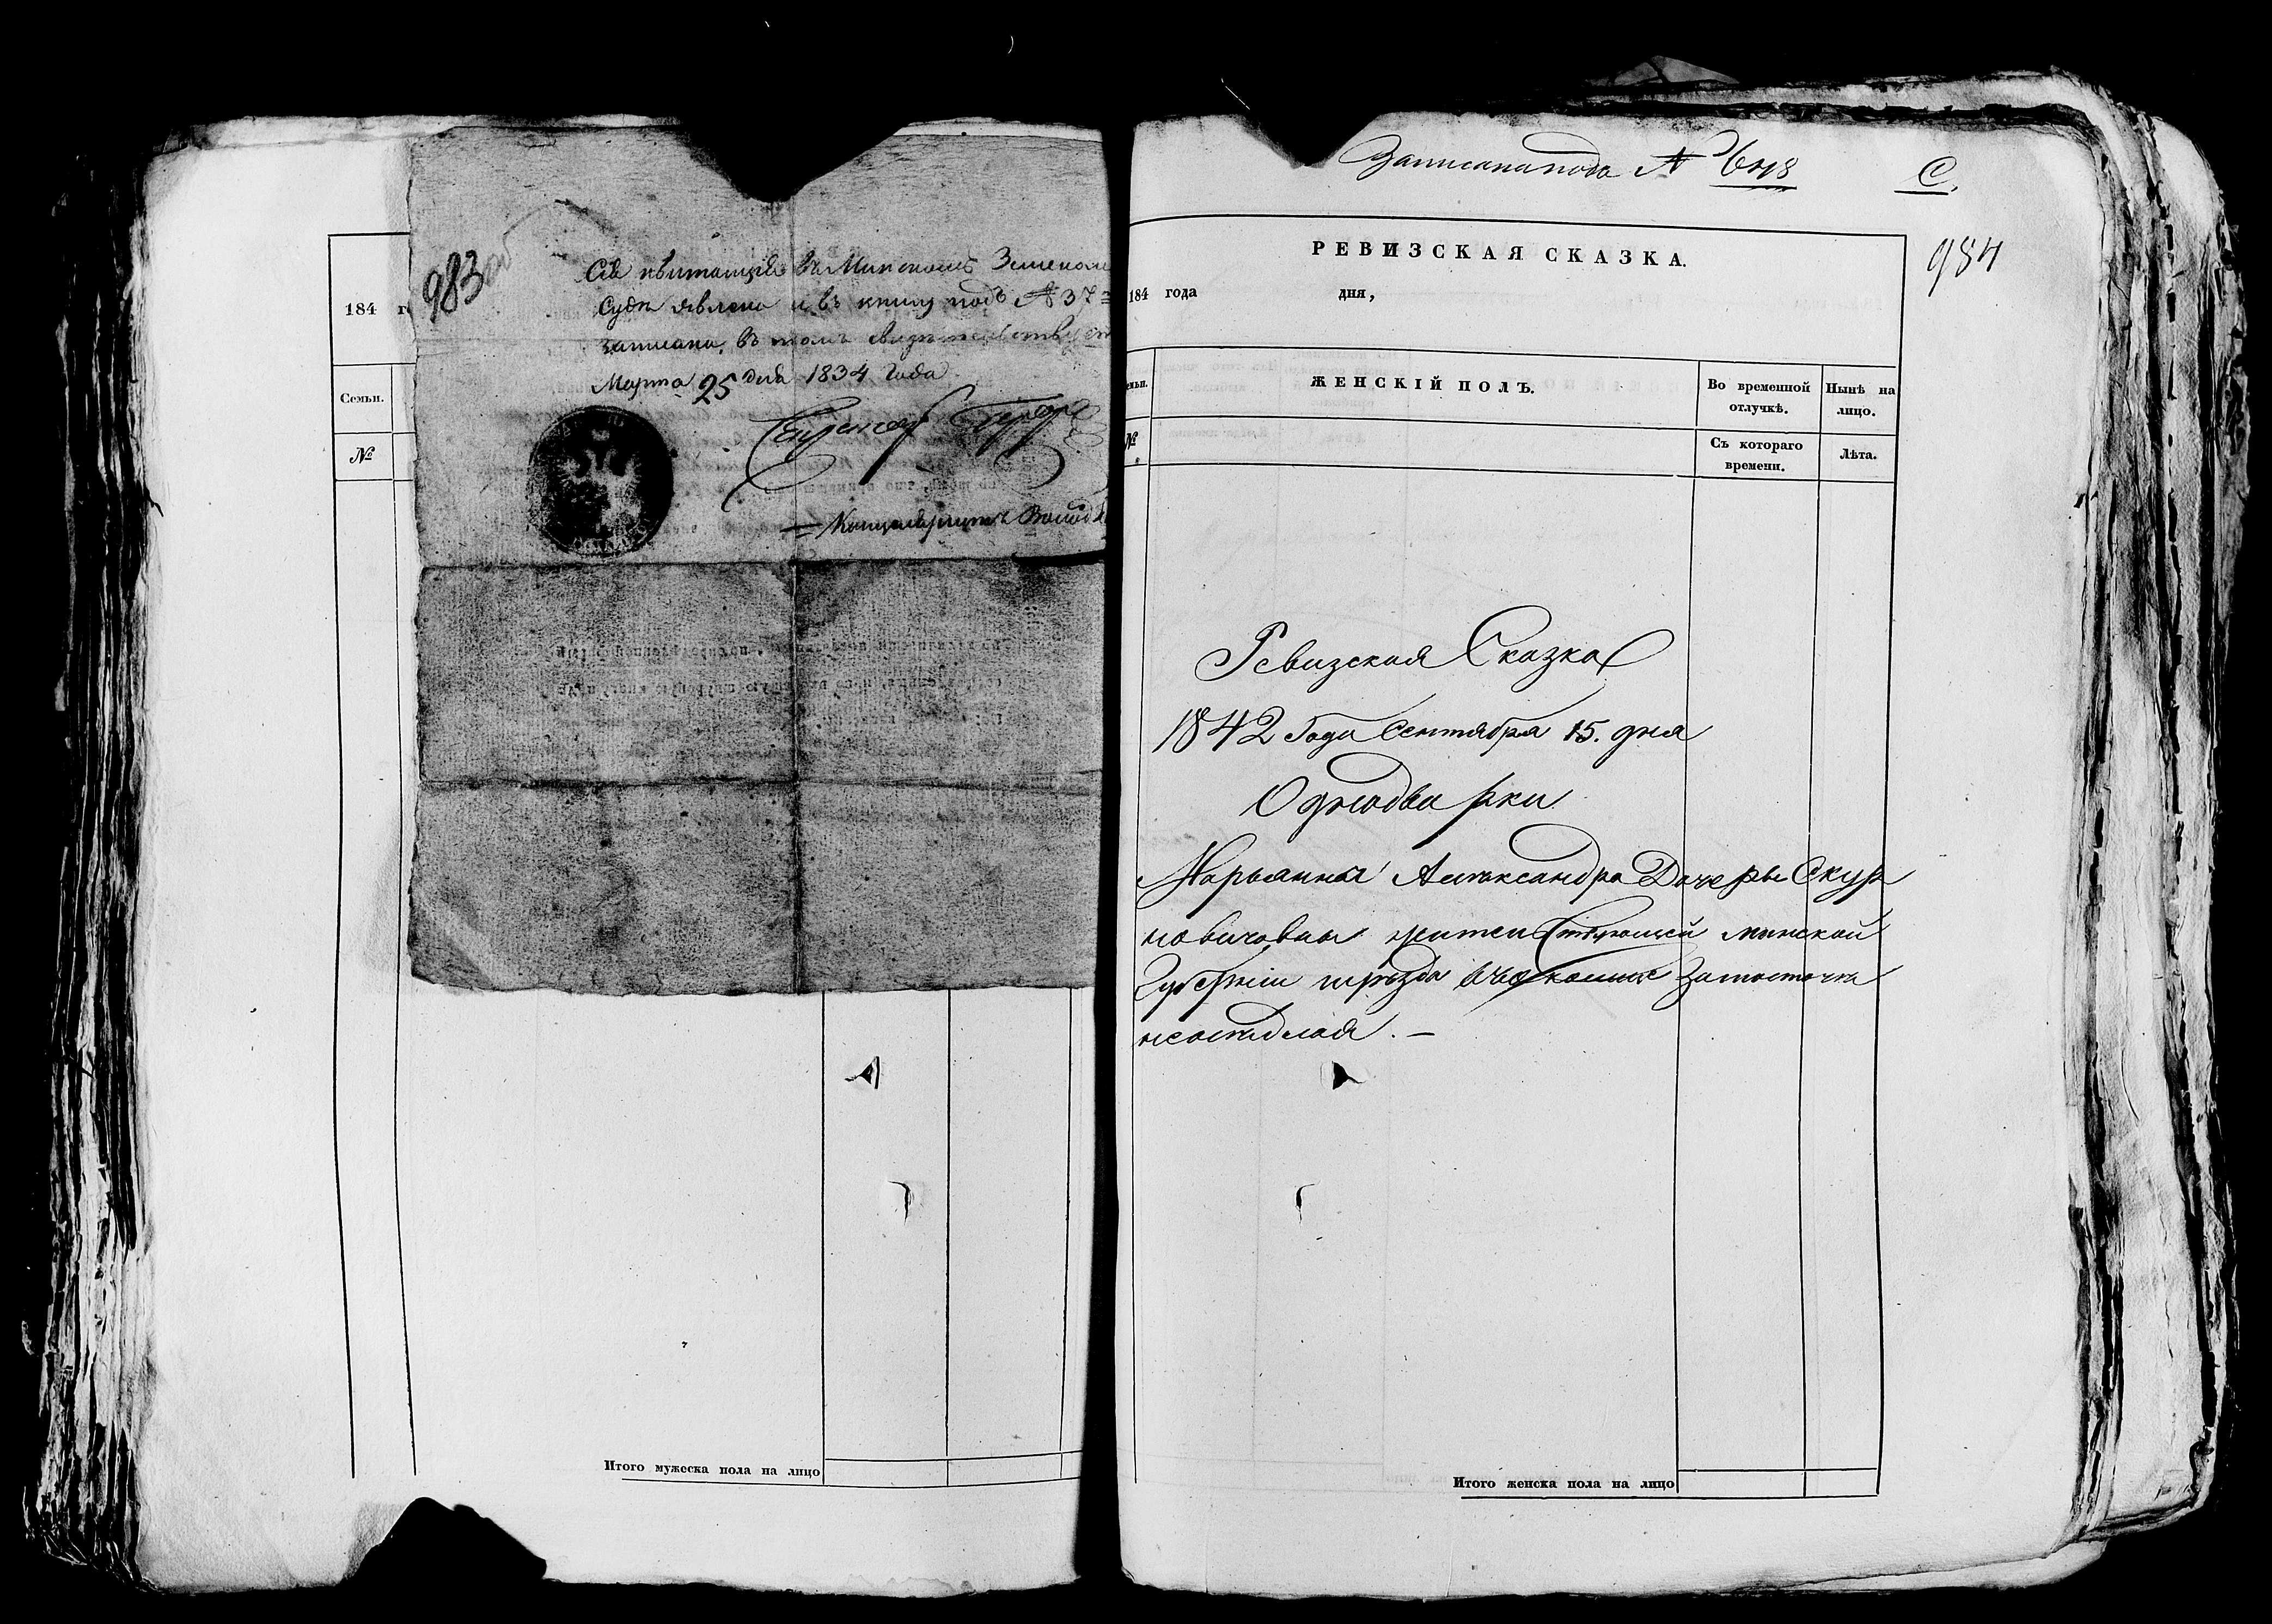 983 об
Сія квитанція въ Минскомъ Земском
Судѣ явлена и въ книгу подъ № 37
записана, въ томъ свидѣтельствуетъ
Марта 25 дня 1834 года
Канцеляристъ
184
Семьи.
№
Итого мужеска пола на лицо
Записана подъ №
С.
984
РЕВИЗСКАЯ СКАЗКА.
184 года дня,
ЖЕНСКІЙ ПОЛЪ.
Во временной отлучкѣ.
Нынѣ на лицо.
№
Съ котораго времени.
Лѣта.
Ревизская Сказка
1842 Года Сентября 15. дня
Однодворки
Марьянны Александра Дочери Скур
новичовны жительствующей минской
Губерніи и уѣзда въ околицѣ Замосточьи
неосѣдлая. —
Итого женска пола на лицо